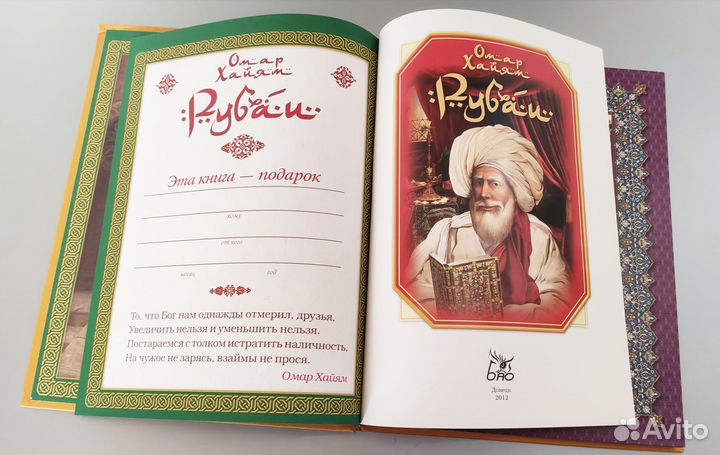 Омар
Хайям
Рубаи
Эта книга — подарок
кому
от кого
месяц год
То, что Бог нам однажды отмерил, друзья,
Увеличить нельзя и уменьшить нельзя.
Постараемся с толком истратить наличность,
На чужое не зарясь, взаймы не прося.
Омар Хайям
Омар
Хайям
Рубаи
БАО
Донецк
2012
Avito